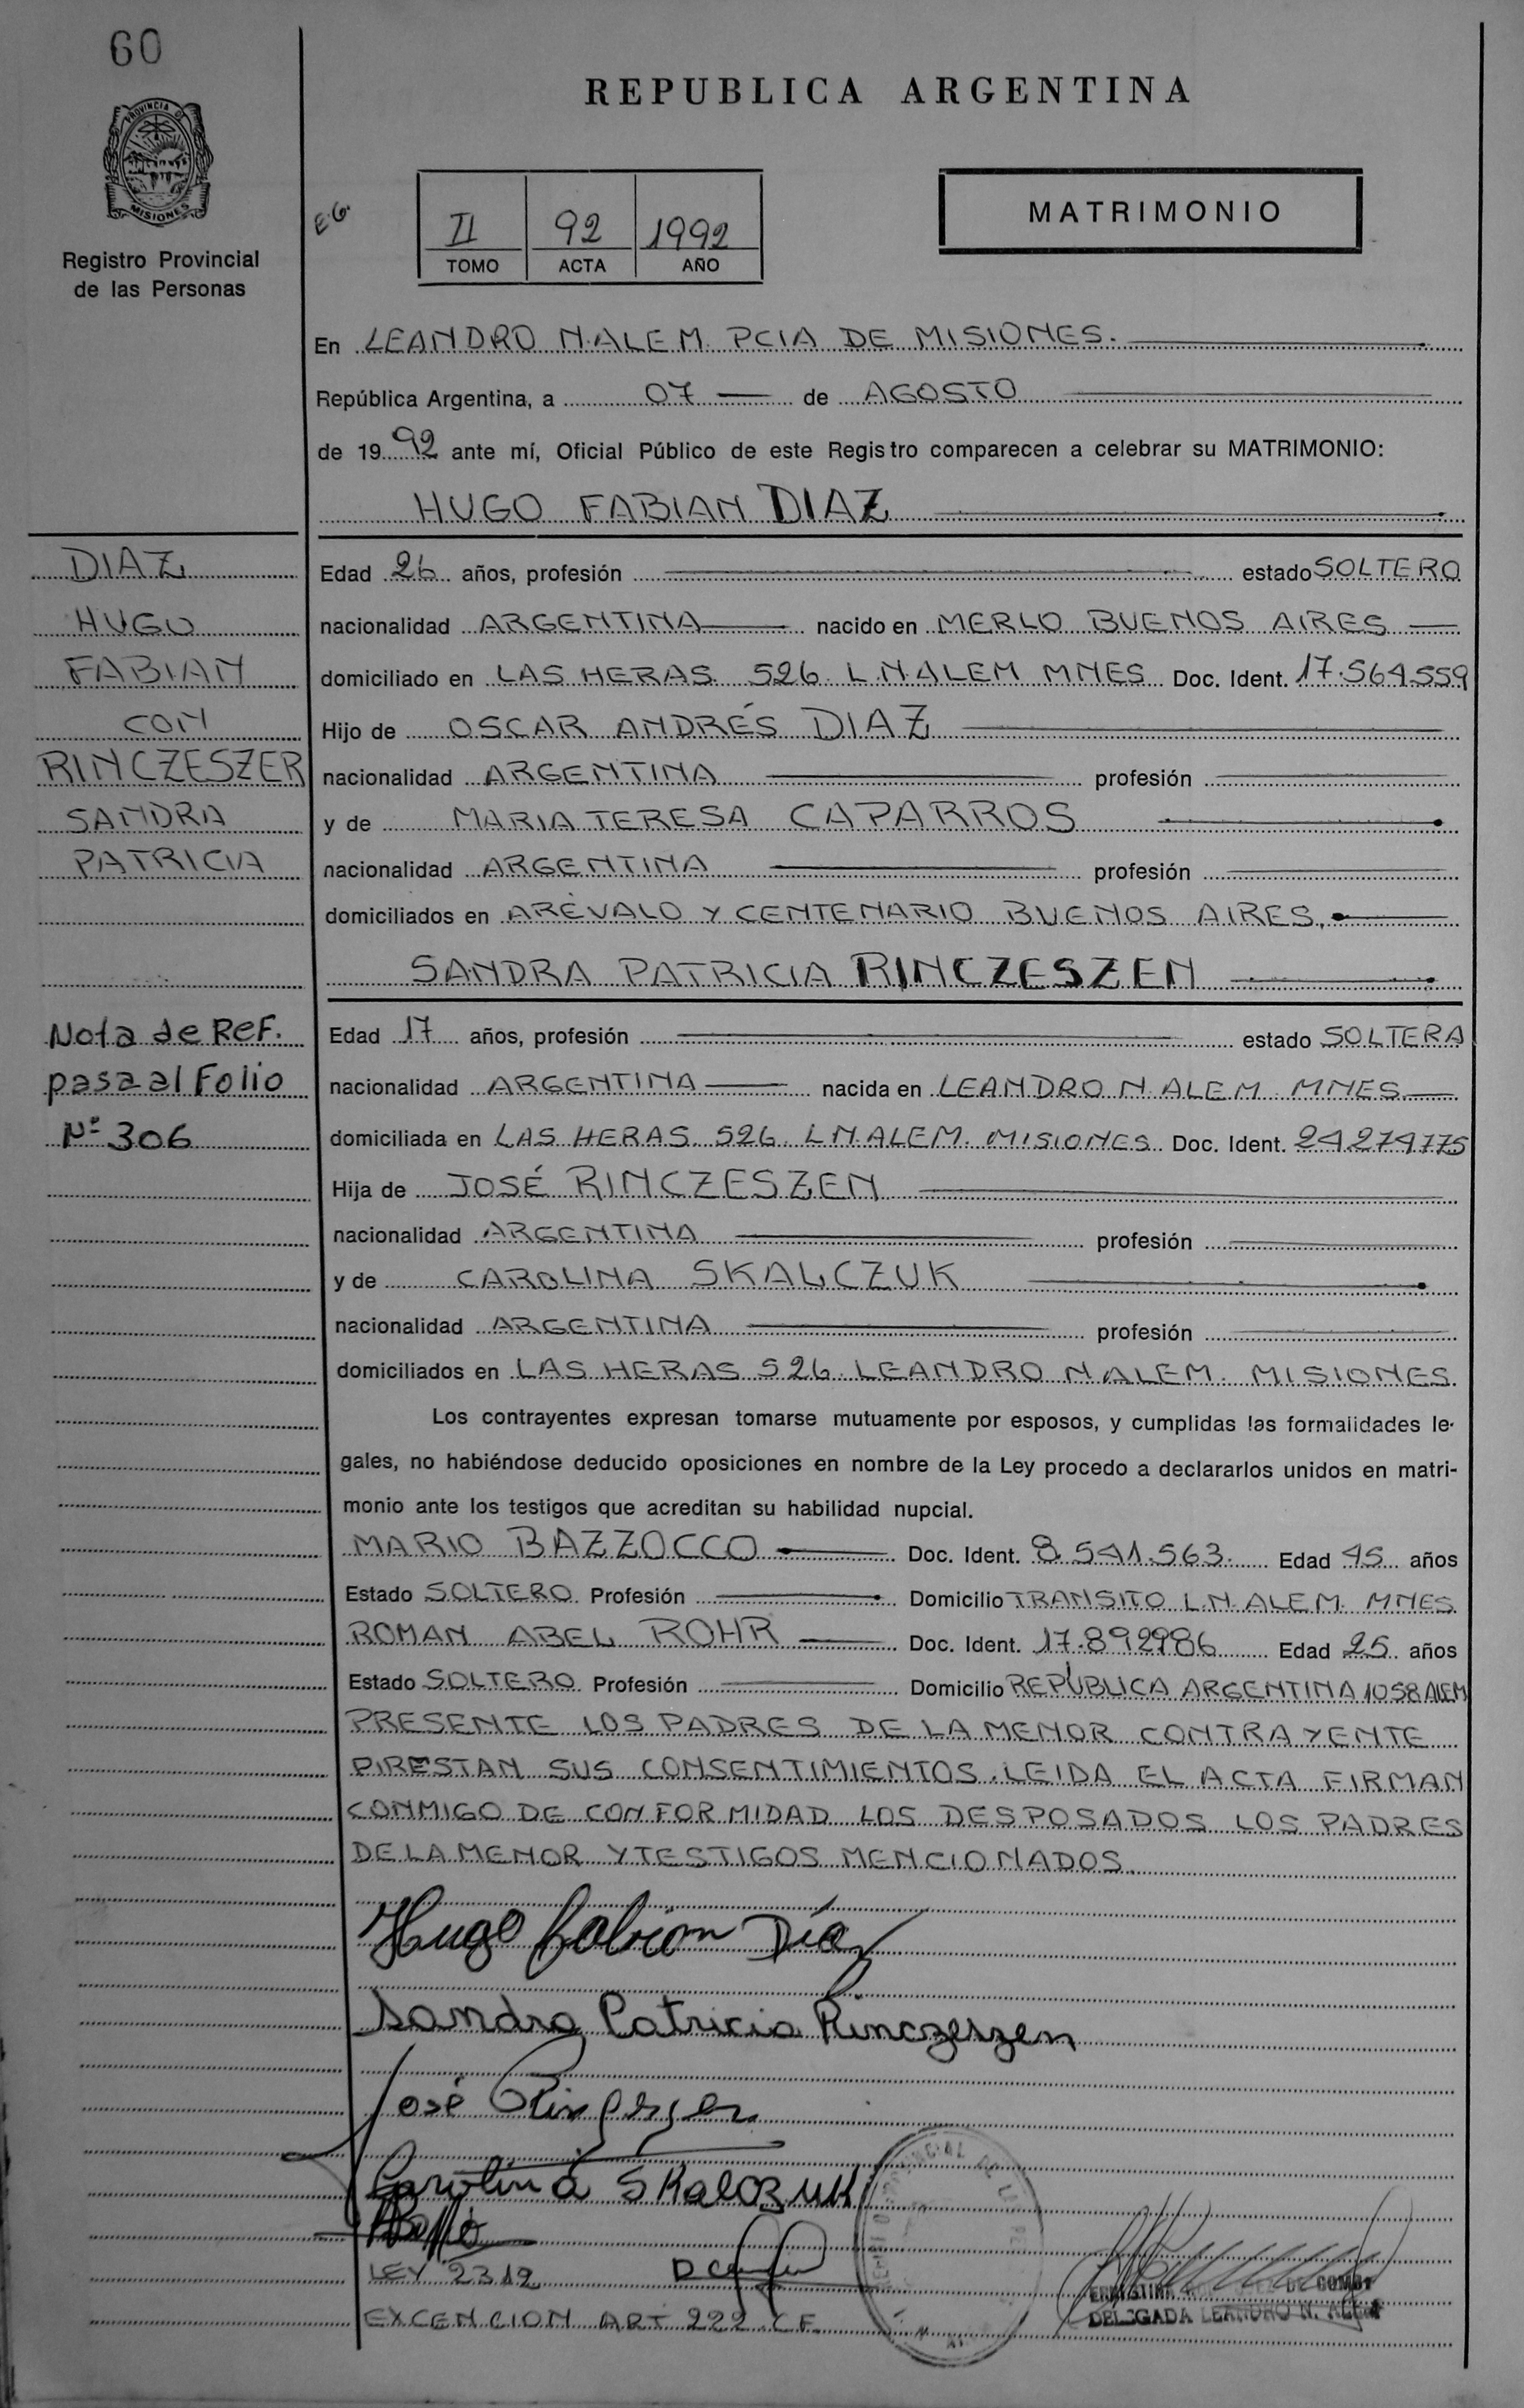 60
PROVINCIA DE
MISIONES
Registro Provincial
de las Personas
REPUBLICA ARGENTINA
E.G.
II 92 1992
TOMO ACTA AÑO
MATRIMONIO
En LEANDRO N. ALEM. PCIA DE MISIONES.
República Argentina, a 07 de AGOSTO
de 1992 ante mí, Oficial Público de este Registro comparecen a celebrar su MATRIMONIO:
HUGO FABIAN DIAZ
DIAZ
HUGO
FABIAN
CON
RINCZESZER
SANDRA
PATRICIA
Edad 26 años, profesión estado SOLTERO
nacionalidad ARGENTINA nacido en MERLO BUENOS AIRES
domiciliado en LAS HERAS 526 L.N.ALEM MNES Doc. Ident. 17.564.559
Hijo de OSCAR ANDRÉS DIAZ
nacionalidad ARGENTINA profesión
y de MARIA TERESA CAPARROS
nacionalidad ARGENTINA profesión
domiciliados en ARÉVALO Y CENTENARIO BUENOS AIRES.
SANDRA PATRICIA RINCZESZEN
Nota de ReF.
pasa al Folio
Nº 306
Edad 17 años, profesión estado SOLTERA
nacionalidad ARGENTINA nacida en LEANDRO N. ALEM. MNES
domiciliada en LAS HERAS 526 L.N.ALEM. MISIONES Doc. Ident. 24274775
Hija de JOSÉ RINCZESZEN
nacionalidad ARGENTINA profesión
y de CAROLINA SKALCZUK
nacionalidad ARGENTINA profesión
domiciliados en LAS HERAS 526. LEANDRO N ALEM. MISIONES
Los contrayentes expresan tomarse mutuamente por esposos, y cumplidas las formalidades le-
gales, no habiéndose deducido oposiciones en nombre de la Ley procedo a declararlos unidos en matri-
monio ante los testigos que acreditan su habilidad nupcial.
MARIO BAZZOCCO Doc. Ident. 8.541.563. Edad 45 años
Estado SOLTERO Profesión Domicilio TRANSITO L.N. ALEM. MNES
ROMAN ABEL ROHR Doc. Ident. 17.892986 Edad 25 años
Estado SOLTERO Profesión Domicilio REPÚBLICA ARGENTINA 1058 ALEM
PRESENTE LOS PADRES DE LA MENOR CONTRAYENTE
PRESTAN SUS CONSENTIMIENTOS. LEIDA EL ACTA FIRMAN
CONMIGO DE CONFORMIDAD LOS DESPOSADOS LOS PADRES
DE LA MENOR Y TESTIGOS MENCIONADOS.
Hugo Fabian Díaz
Sandra Patricia Rinczeszen
José Rinczeszen
Carolina Skalczuk
LEY 2312
EXCENCION ART 222. C F.
DELEGADA LEANDRO N. ALEM